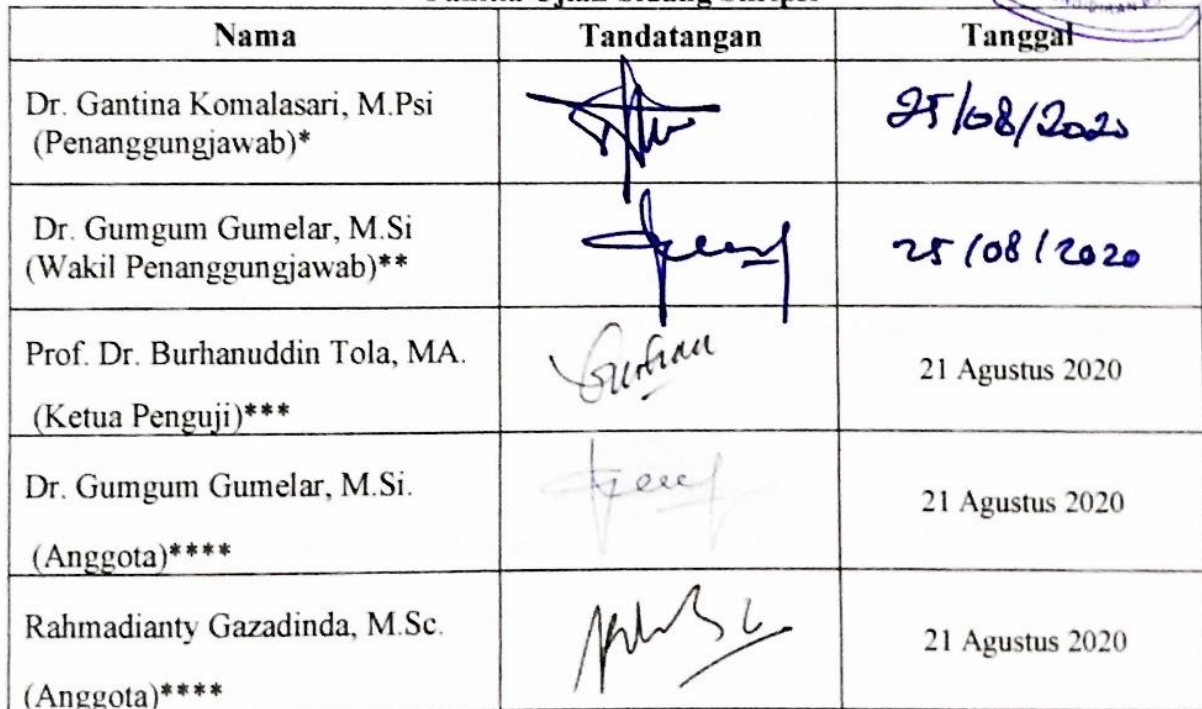 Panitia Ujian Sidang Skripsi
Nama Tandatangan Tanggal
Dr. Gantina Komalasari, M.Psi
(Penanggungjawab)*
25/08/2020
Dr. Gumgum Gumelar, M.Si
(Wakil Penanggungjawab)**
25/08/2020
Prof. Dr. Burhanuddin Tola, MA.
(Ketua Penguji)***
21 Agustus 2020
Dr. Gumgum Gumelar, M.Si.
(Anggota)****
21 Agustus 2020
Rahmadianty Gazadinda, M.Sc.
(Anggota)****
21 Agustus 2020